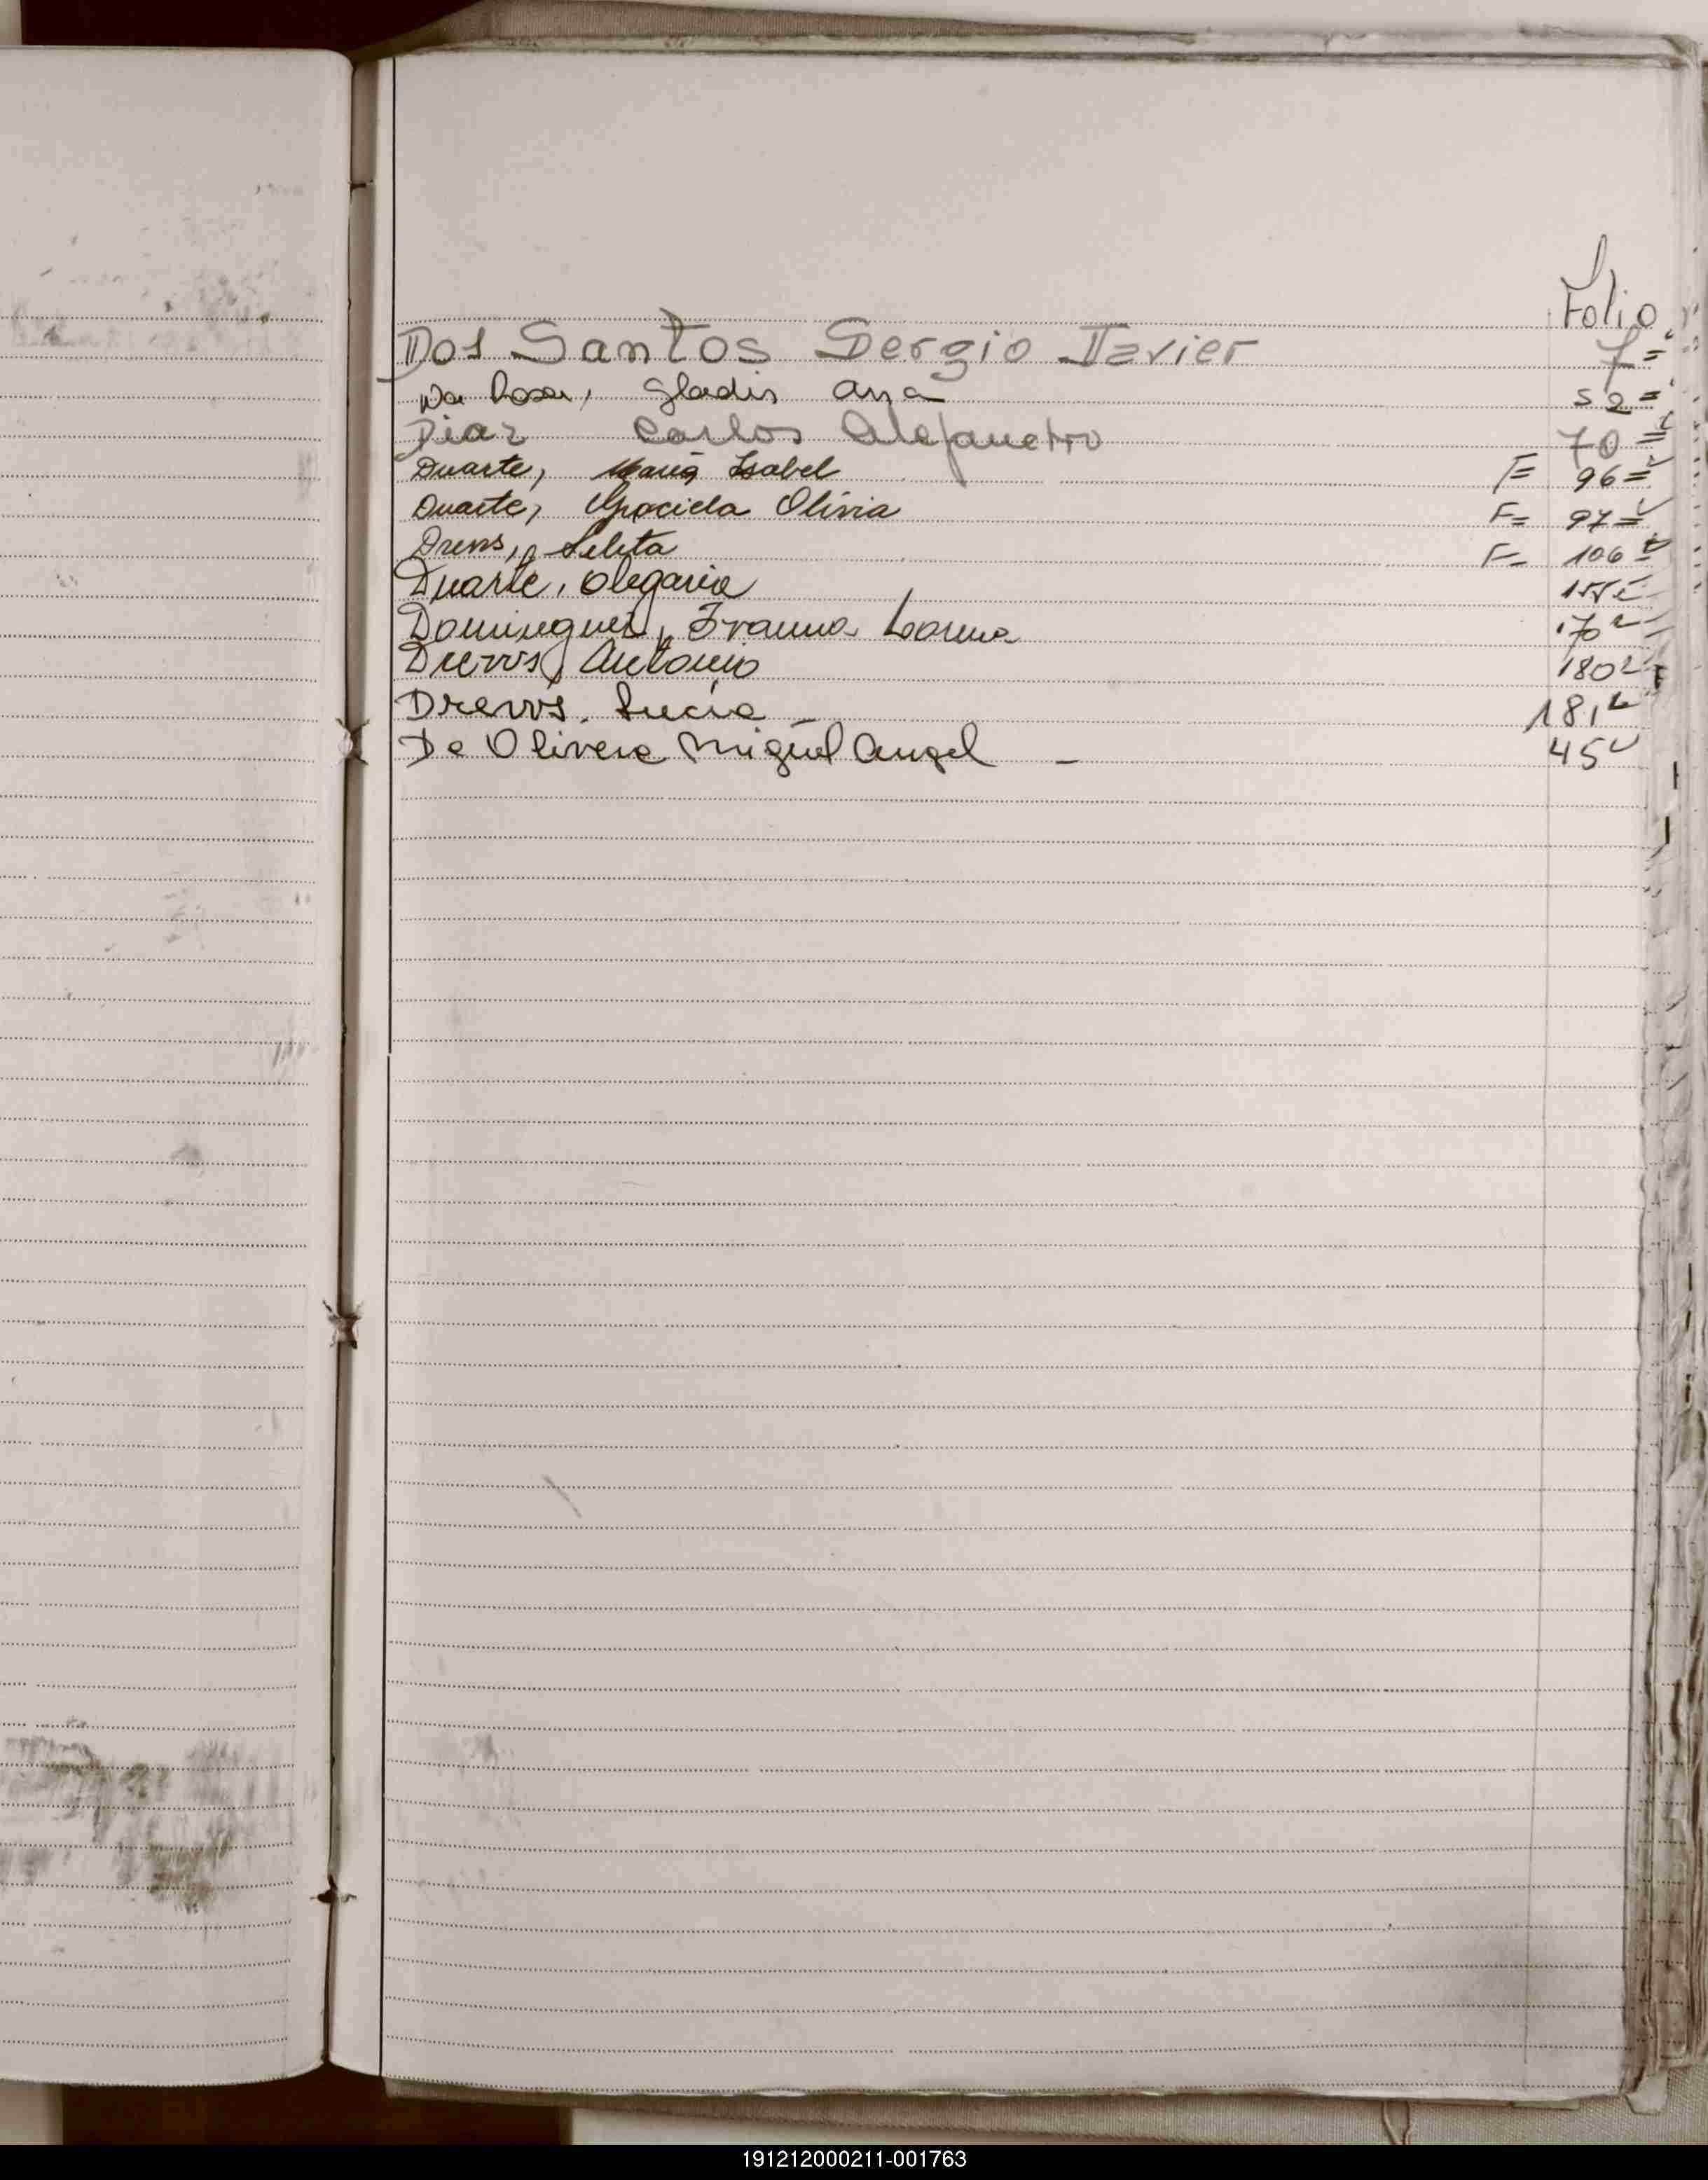 Folio
Dos Santos Sergio Javier 7=
Da Rosa, Gladis Ana 52=
Diaz Carlos Alejandro 70=
Duarte, María Isabel F= 96=
Duarte, Graciela Olivia F= 97=
Drews, F= 106
Duarte, Olegaria 155
Dominguez, Lorena 170
Drews, Antonio 180
Drews. Lucía - 181
De Olivera Miguel Angel - 45
191212000211-001763